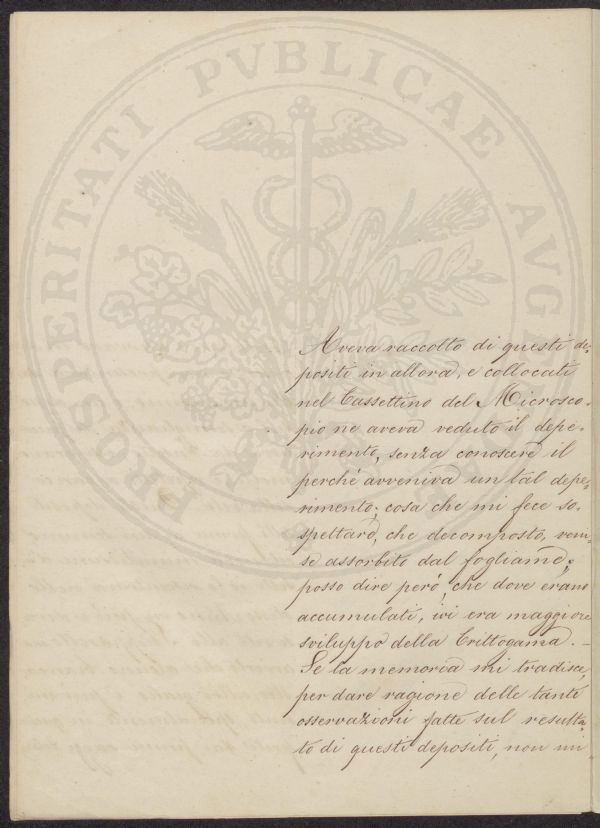 PROSPERITATI PVBLICAE AVGENDAE
Aveva raccolto di questi de-
positi in allora, e collocati
nel Cassettino del Microsco-
pio ne aveva veduto il depe-
rimento, senza conoscere il
perché avveniva un tal depe-
rimento; cosa che mi fece so-
spettare, che decomposto, venis-
se assorbito dal fogliame;
posso dire però, che dove erano
accumulati, ivi era maggiore
sviluppo della Crittogama. _
Se la memoria mi tradisce,
per dare ragione delle tante
osservazioni fatte sul resulta-
to di questi depositi, non mi